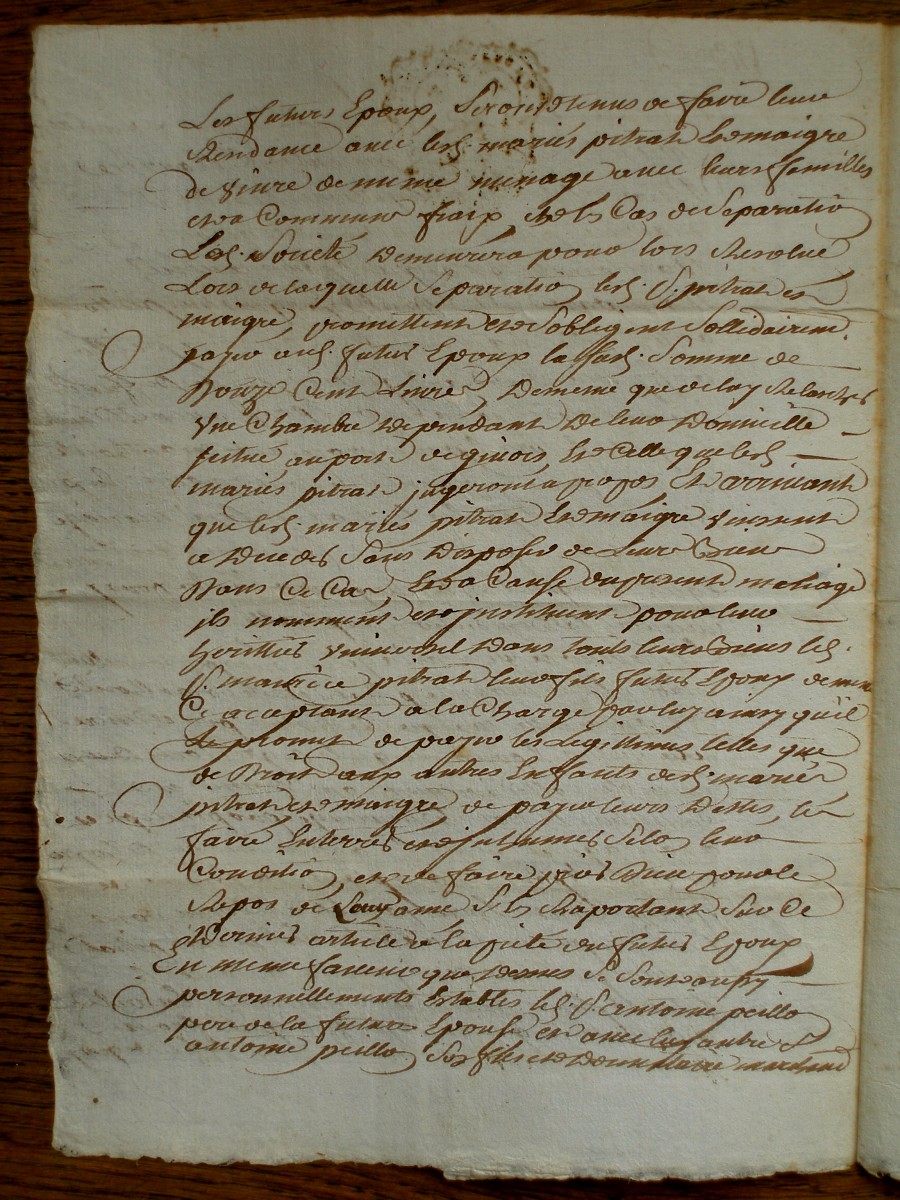 Les futurs Epoux, Seront tenus de faire leur
Residance avec lesd. mariés pitrat et maigre
de vivre de meme menage avec leurs familles
et a Commune fraix, et es Cas de Separatio
Lad. Societé demeurera pour lors Resolue
Lors de laquelle Separatio, lesd. S. pitrat et
maigre, promettent et Sobligent Sollidairem.
payer ausd. futurs Epoux la susd. Somme de
Douze Cent Livres, de meme que de luy Relascher
une Chambre dependant de leur domicille
scitué au port de givors et Celle que lesd.
mariés pitrat jugeront a propos Et arrivant
que lesd. mariés pitrat et maigre vinssent
a deceder Sans disposer de Leurs Biens
Dans Ce Cas et a Cause du present mariage
ils nomment et instituent pour leur
heritier universel dans touts leurs Biens led.
S. maurice pitrat leur fils futur Epoux
Ce acceptant a la Charge par luy ainsy qu'il
Le promet de payer les Legittimes telles que
de Droit aux autres Enfants desd. mariés
pitrat et maigre de payer leurs dettes, les
faire Enterrer et inhumer Selo leur
Conditio, et de faire prier Dieu pour le
Repos de Leur ame S'en Raportant Sur Ce
dernier article a la pieté du futur Epoux
En meme faveur que dessus Se Sont aussy
personnellements Establis led. S. antoine peillo
pere de la future Epouse et avec luy autre S.
antoine peillo Son fils et donnataire marchand